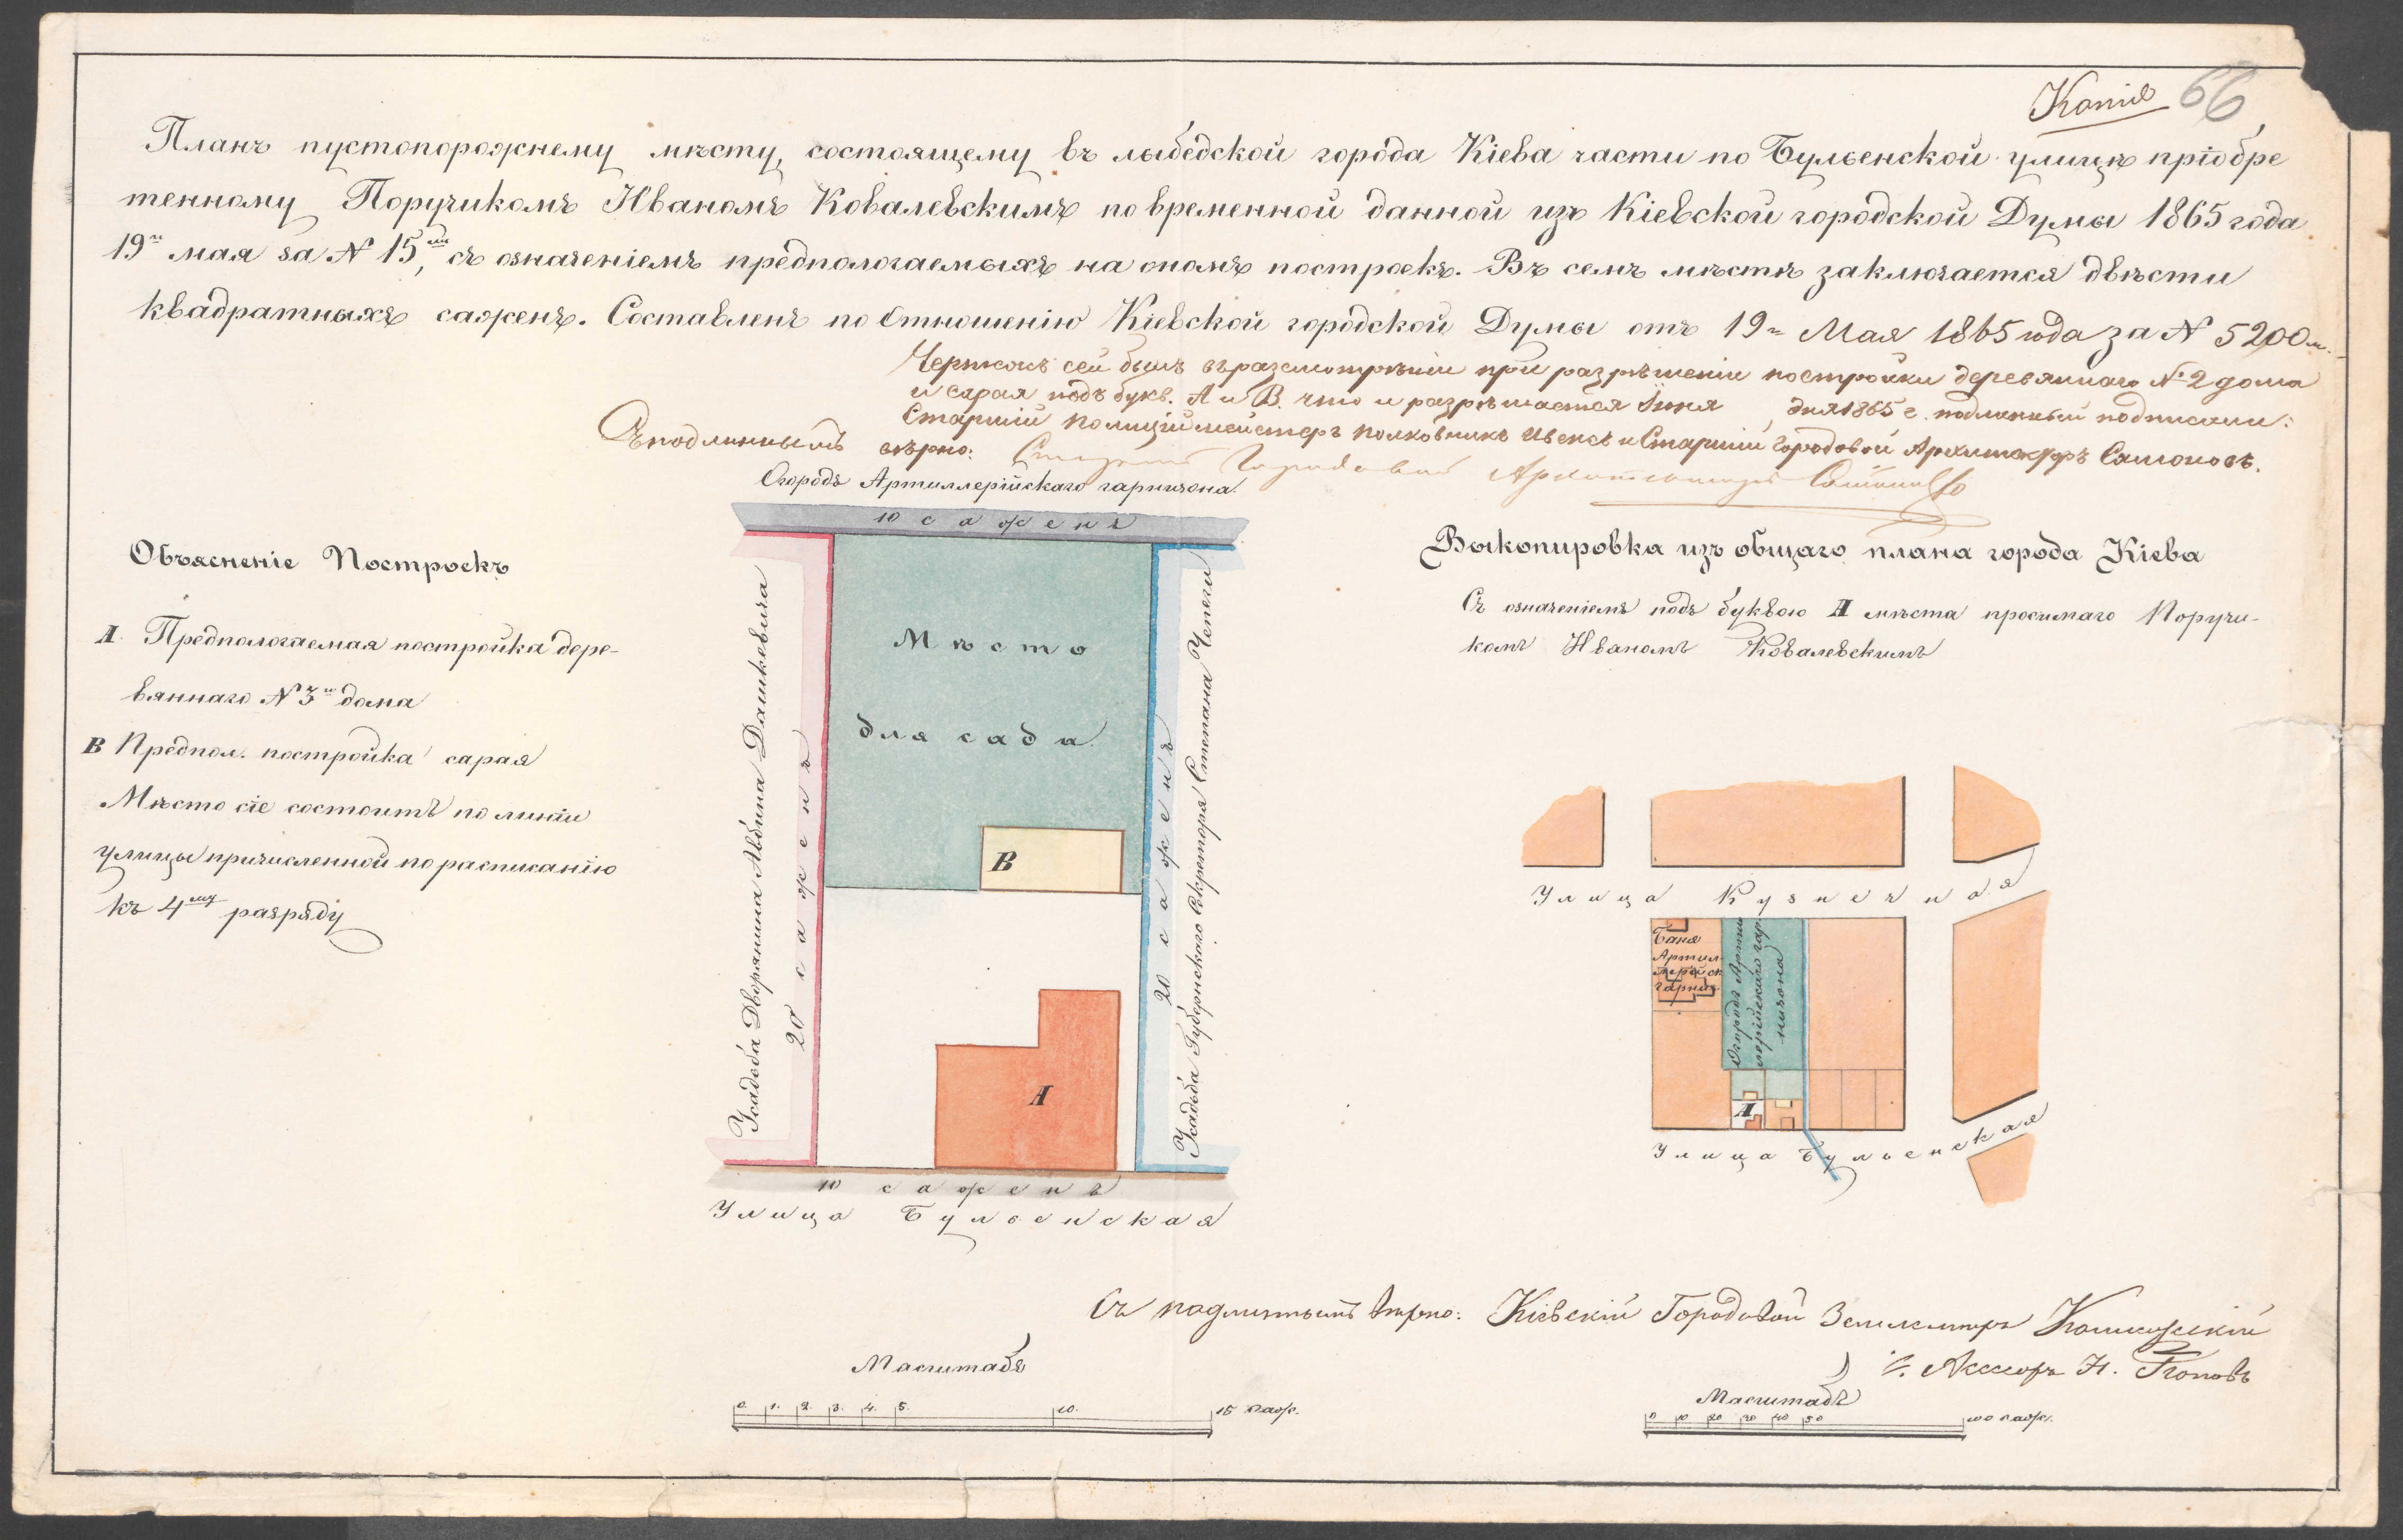 Копія 66
Планъ пустопорожнему мѣсту, состоящему въ лыбедской города Кіева части по Бульенской улицѣ пріобре
тенному Поручикомъ Иваномъ Ковалевскимъ по временной данной изъ Кіевской городской Думы 1865 года
19го мая за N 15мъ, съ означеніемъ предпологаемыхъ на ономъ построекъ. Въ семъ мѣстѣ заключается двѣсти
квадратныхъ саженъ. Составленъ по Отношенію Кіевской городской Думы отъ 19го Мая 1865 года за N 5200м.
Чертежъ сей былъ въ разсмотрѣніи при разрѣшеніи постройки деревяннаго №2 дома
и сарая подъ букв. А и В. что и разрѣшается Іюня дня 1865 г. подлинный подписали:
Старшій полиціймейстеръ полковникъ Ивенсъ и Старшій Городовой Архитекторъ Самоновъ.
Съ подлиннымъ вѣрно: Старшій Городовой Архитекторъ
Огородъ Артиллерійскаго гарнизона.
10 саженъ
Объясненіе Построекъ
А. Предпологаемая постройка дере-
вяннаго N 3го дома
В Предпол. постройка сарая
Мѣсто сіе состоитъ по линіи
улицы причисленной по расписанію
къ 4му разряду
Усадьба Дворянина Дашкевича
20 саженъ
Мѣсто
для сада.
В
А
20 саженъ
Усадьба Губернскаго Секретаря Степана Чепеги
10 саженъ
Улица Бульенская
Выкопировка изъ общаго плана города Кіева
Съ означеніемъ подъ буквою А мѣста просимаго Поручи-
комъ Иваномъ Ковалевскимъ
Улица Кузнечная
Баня
Артил-
лерійск
гарниз.
Огородъ Арти
лерійскаго гар
низона
А
Улица Бульенская
Съ подлиннымъ вѣрно: Кіевскій Городовой Землемѣръ
Ассесоръ Н. Поповъ
Масштабъ
0. 1. 2. 3. 4. 5. 10. 15 саж.
Масштабъ
0 10 20 30 40 50 100 саж.